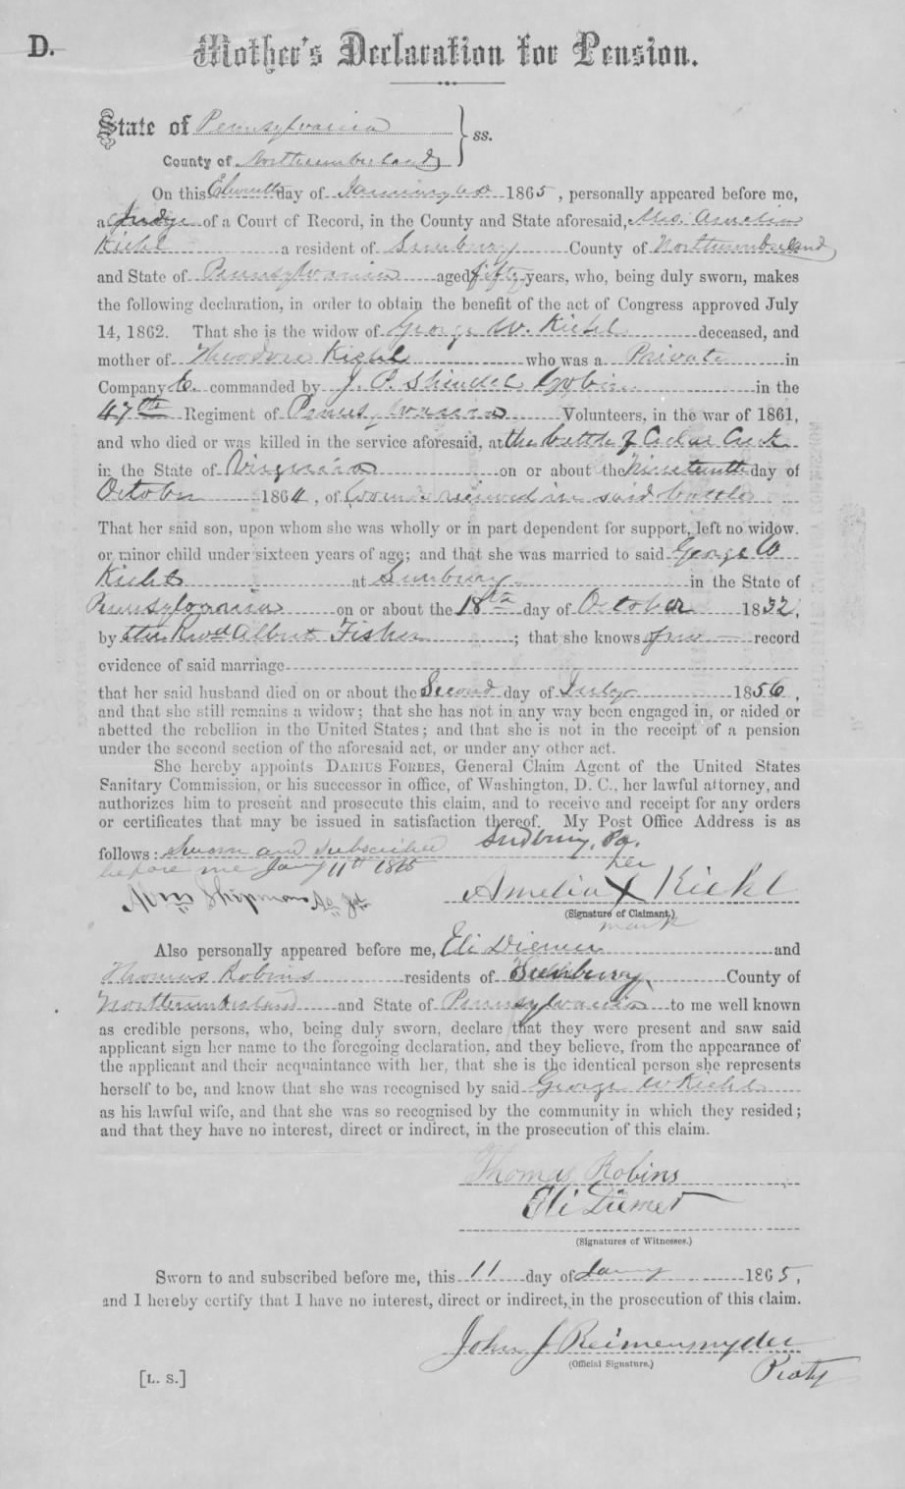 D.
Mother's Declaration for Pension.
State of Pennsylvania } ss.
County of Northumberland
On this Eleventh day of January 1865, personally appeared before me,
a Judge of a Court of Record, in the County and State aforesaid, Mrs. Amelia
Kiehl a resident of Sunbury County of Northumberland
and State of Pennsylvania aged fifty years, who, being duly sworn, makes
the following declaration, in order to obtain the benefit of the act of Congress approved July
14, 1862. That she is the widow of George W. Kiehl deceased, and
mother of Theodore Kiehl who was a Private in
Company C. commanded by J. P. Shindel Gobin in the
47th Regiment of Pennsylvania Volunteers, in the war of 1861,
and who died or was killed in the service aforesaid, at the battle of Cedar Creek
in the State of Virginia on or about the Nineteenth day of
October 1864, of wounds received in said battle
That her said son, upon whom she was wholly or in part dependent for support, left no widow.
or minor child under sixteen years of age; and that she was married to said George W
Kiehl at Sunbury in the State of
Pennsylvania on or about the 18th day of October 1832,
by the Revd Albert Fisher ; that she knows of no record
evidence of said marriage
that her said husband died on or about the Second day of July 1856,
and that she still remains a widow; that she has not in any way been engaged in, or aided or
abetted the rebellion in the United States; and that she is not in the receipt of a pension
under the second section of the aforesaid act, or under any other act.
She hereby appoints DARIUS FORBES, General Claim Agent of the United States
Sanitary Commission, or his successor in office, of Washington, D. C., her lawful attorney, and
authorizes him to present and prosecute this claim, and to receive and receipt for any orders
or certificates that may be issued in satisfaction thereof. My Post Office Address is as
follows: Sworn and subscribed Sudbury, Pa.
before me Jany 11th 1865 her
Wm Shipman Amelia X Kiehl
(Signature of Claimant.)
mark
Also personally appeared before me, Eli Diemer and
Thomas Robins residents of Sunbury County of
Northumberland and State of Pennsylvania to me well known
as credible persons, who, being duly sworn, declare that they were present and saw said
applicant sign her name to the foregoing declaration, and they believe, from the appearance of
the applicant and their acquaintance with her, that she is the identical person she represents
herself to be, and know that she was recognised by said George W Kiehl
as his lawful wife, and that she was so recognised by the community in which they resided;
and that they have no interest, direct or indirect, in the prosecution of this claim.
Thomas Robins
Eli Diemer
(Signatures of Witnesses.)
Sworn to and subscribed before me, this 11 day of Jany 1865,
and I hereby certify that I have no interest, direct or indirect, in the prosecution of this claim.
John J Reimensnyder
(Official Signature.)
Proty
[L. S.]